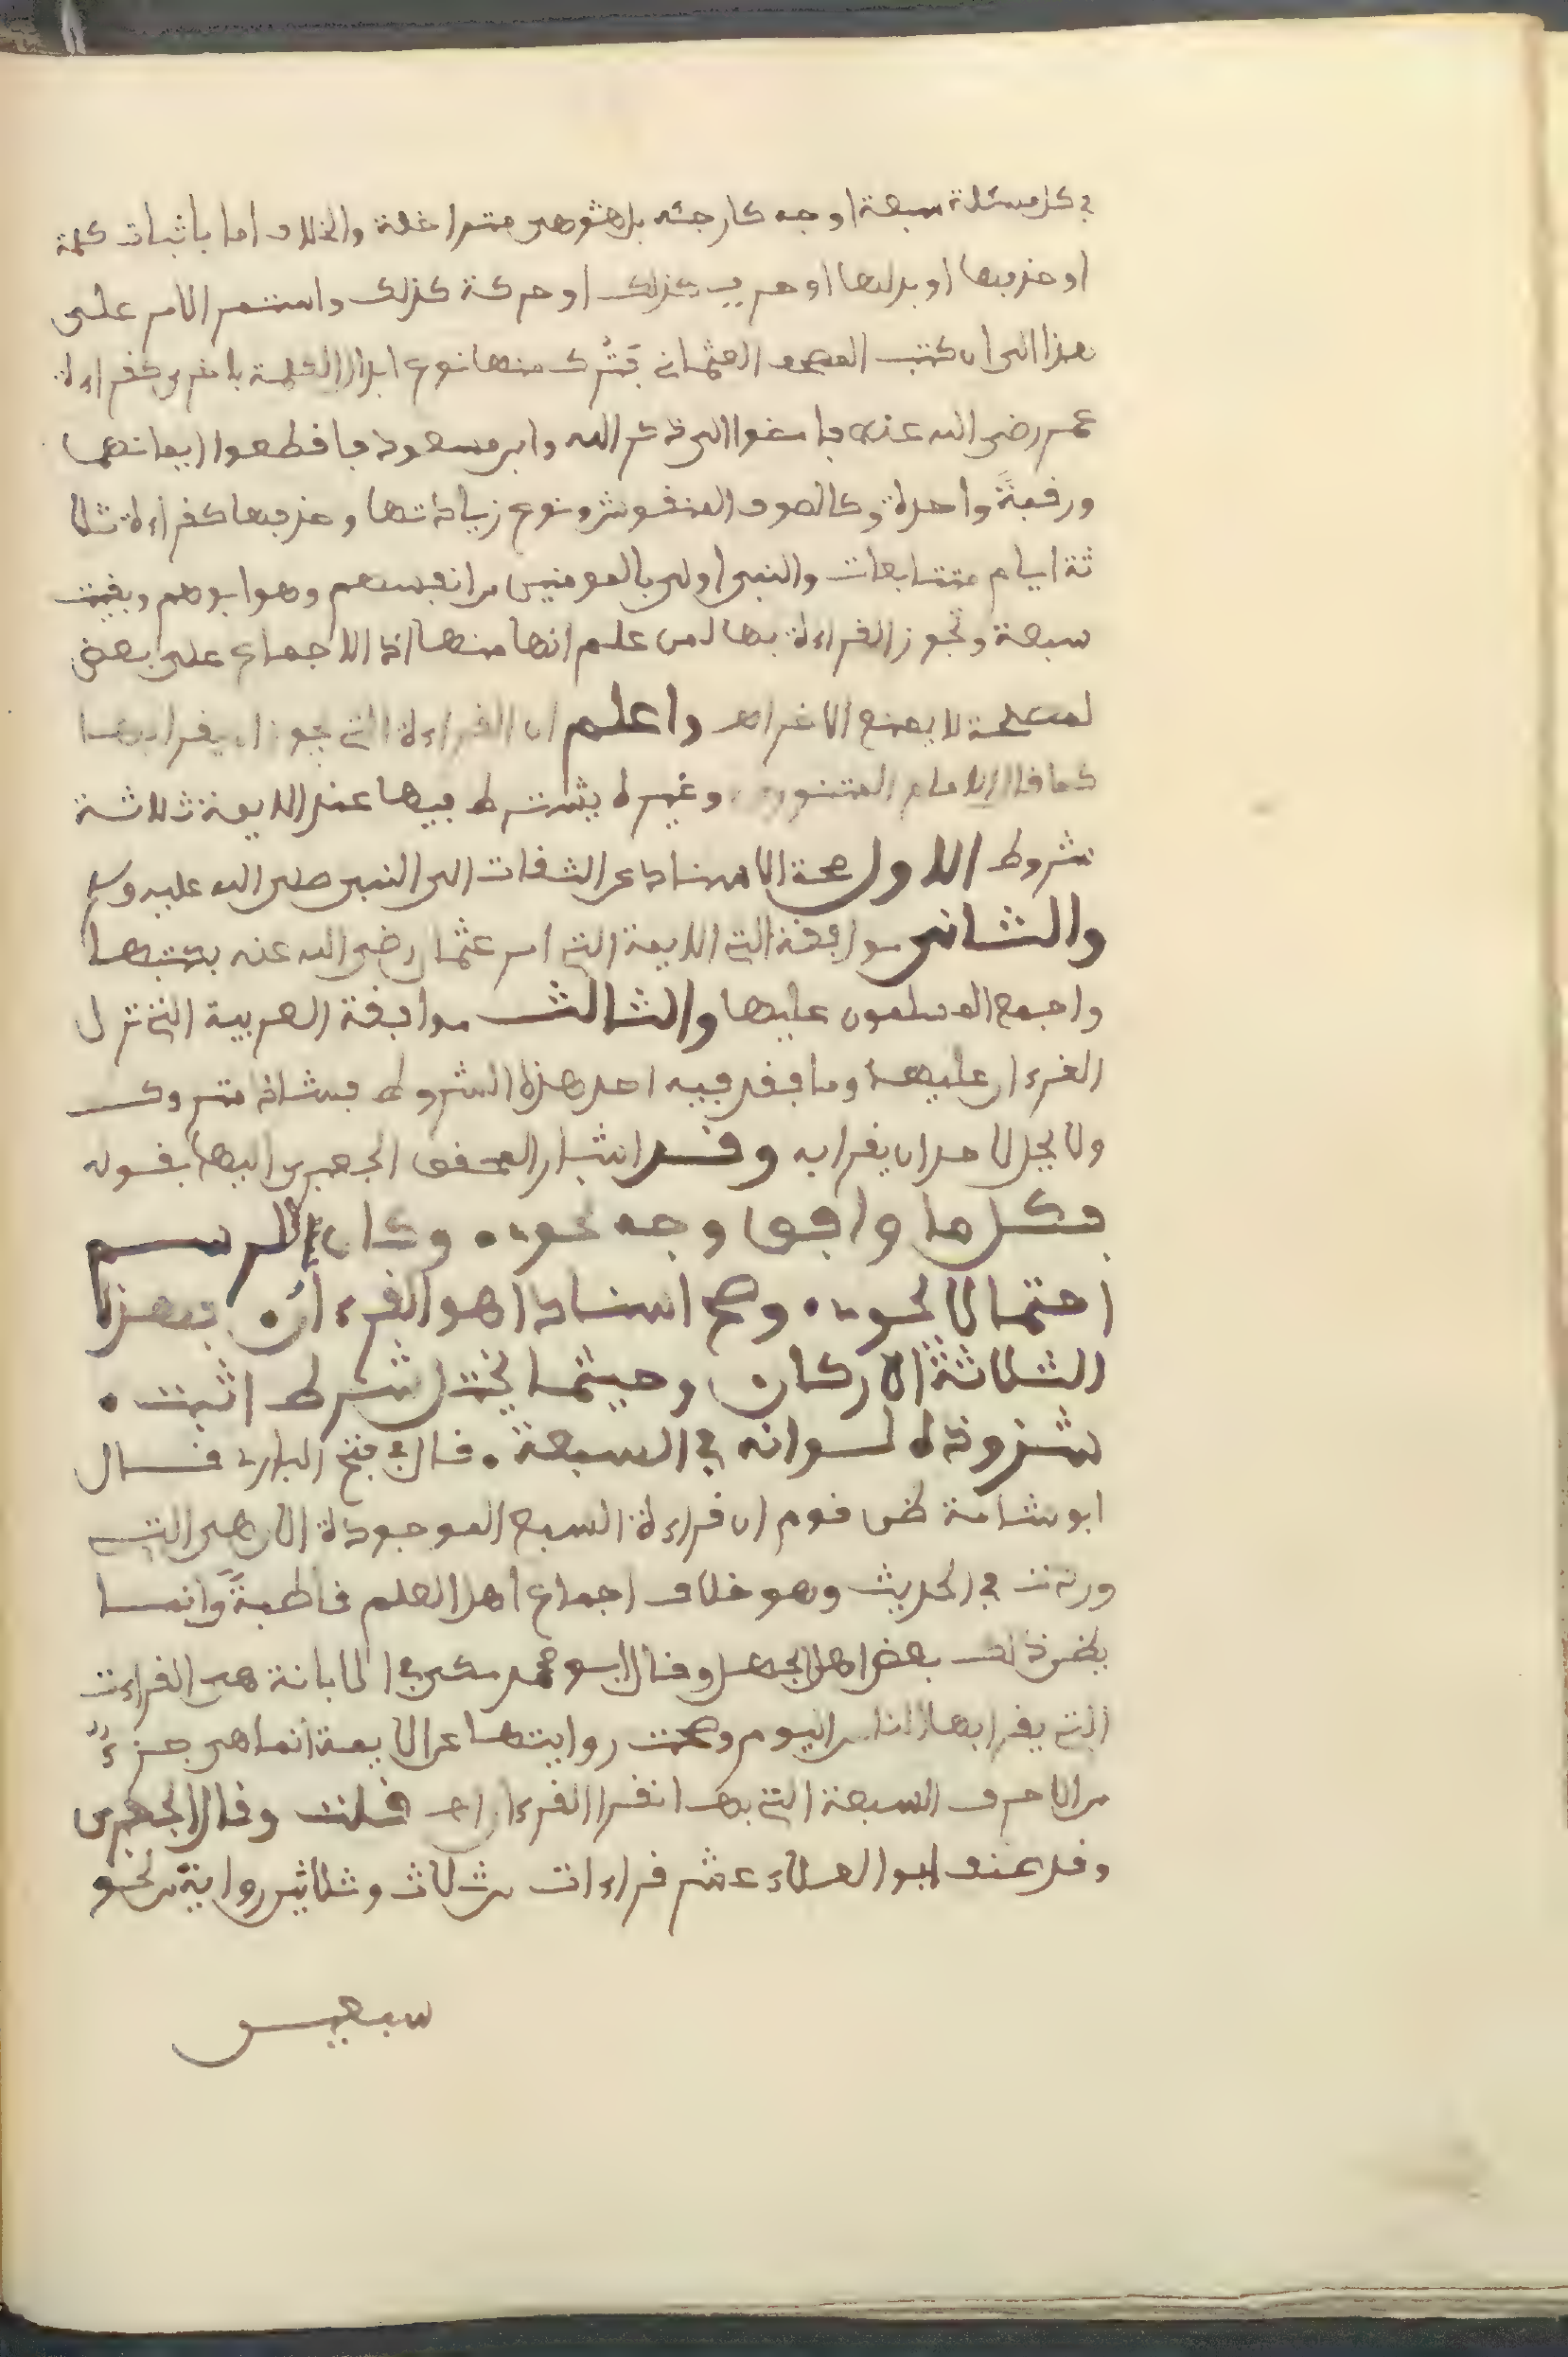 في كل مسئلة سبعة اوجه كارجئه بل هو هي متداخلة والخلاف اما باثبات كلمة
او حذفها او بدلها او حرف كذلك او حركة كذلك واستمر الامر على
هذا الى ان كتب المصحف العثماني فترك منها نوع ابدال الكلمة باخرى كقراءة
عمر رضي الله عنه فامضوا الى ذكر الله وابن مسعود فاقطعوا ايمانهما
ورقبة واحدة وكالصوف المنفوش ونوع زيادتها وحذفها كقراءة ثلا
ثة ايام متتابعات والنبي اولى بالمومنين من انفسهم وهو ابوهم وبقيت
سبعة وتجوز القراءة بها لمن علم انها منها اذ الاجماع على بعض
لمصلحة لا يمنع الاخر اهـ واعلم ان القراءة التي يجوز ان يقرا بها
كما قال الامام المنتوري وغيره يشترط فيها عند الايمة ثلاثة
شروط الاول صحة الاسناد عن الثقات الى النبي صلى الله عليه وسلم
والثاني موافقة التي الايمة التي امر عثمان رضي الله عنه بكتبها
واجمع المسلمون عليها والثالث موافقة العربية التي نزل
القرءان عليها وما فقد فيه احد هذه الشروط فشاذ متروك
ولا يحل لاحد ان يقرا به وقد اشار المحقق الجعبري اليها بقوله
فكل ما وافق وجه نحوي • وكان للرسم
احتمالا يحوي • وصح اسنادا هو القرءان فهذه
الثلاثة الاركان وحيثما يختل شرط اثبت •
شذوذه لو انه في السبعة • قال في فتح الباري قال
ابو شامة ظن قوم ان قراءة السبع الموجودة الان هي التي
وردت في الحديث وهو خلاف اجماع اهل العلم قاطبة وانما
يظن ذلك بعض اهل الجهل وقال ابو محمد مكي في الابانة هي القراءت
التي يقرا بها الناس اليوم وصحت روايتها عن الايمة انما هي جزء
من الاحرف السبعة التي بها نقرا القرءان اهـ قلت وقال الجعبري
وقد عند ابو العلاء عشر قراءات من ثلاث وثلاثين رواية من نحو
سبعين